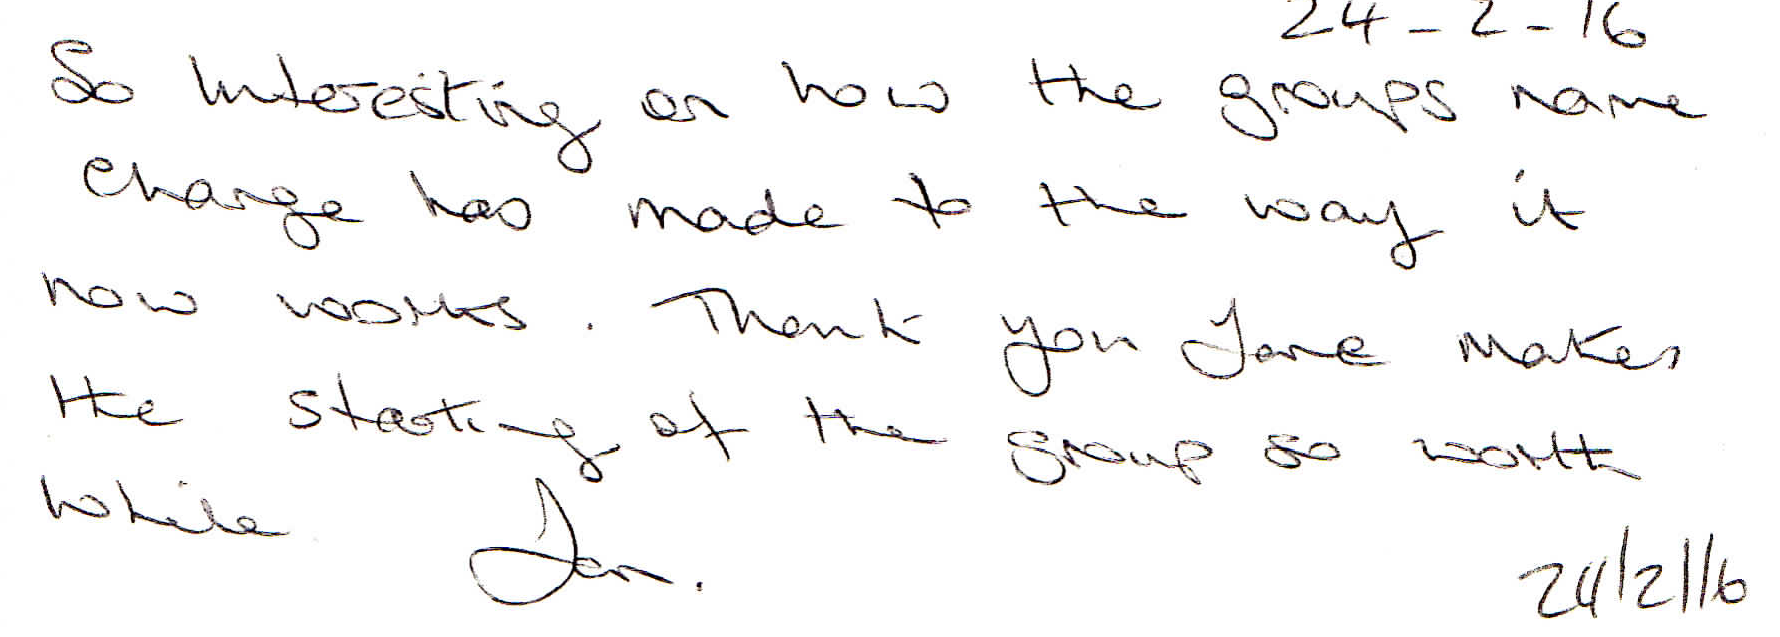 24-2-16
So Interesting on how the groups name
change has made to the way it
now works. Thank you Jane Makes
the starting of the group so worth
while Jan.
24/2/16